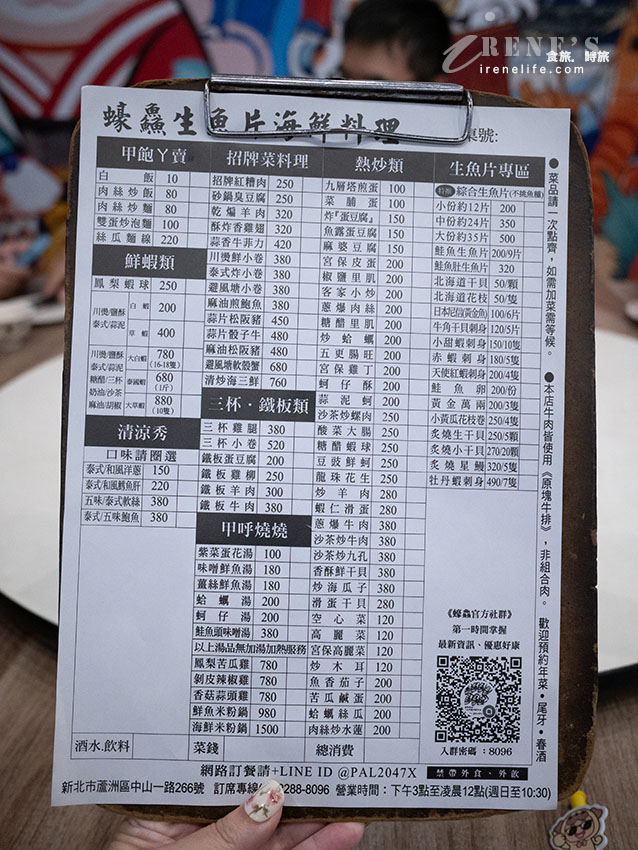 IRENE'S
食旅．時旅
irenelife.com
蠔鱻生魚片海鮮料理
桌號:
甲飽ㄚ賣
白飯 10
肉絲炒飯 80
肉絲炒麵 80
雙蛋炒泡麵 100
絲瓜麵線 220
鮮蝦類
鳳梨蝦球 250
川燙/鹽酥
泰式/蒜泥
白蝦 200
草蝦 400
川燙/鹽酥
泰式/蒜泥
糖醋/三杯
奶油/沙茶
麻油/胡椒
大白蝦 780 (16-18隻)
泰國蝦 680 (1斤)
大草蝦 880 (10隻)
清涼秀
口味請圈選
泰式/和風洋蔥 150
泰式/和風鱈魚肝 220
五味/泰式軟絲 380
泰式/五味鮑魚 380
招牌菜料理
招牌紅糟肉 250
砂鍋臭豆腐 250
乾煸羊肉 320
酥炸香雞翅 320
蒜香牛菲力 420
川燙鮮小卷 380
泰式炸小卷 380
避風塘小卷 380
麻油煎鮑魚 380
蒜片松阪豬 450
蒜片骰子牛 480
麻油松阪豬 480
避風塘軟殼蟹 680
清炒海三鮮 760
三杯·鐵板類
三杯雞腿 380
三杯小卷 520
鐵板蛋豆腐 200
鐵板雞柳 250
鐵板羊肉 300
鐵板牛肉 380
甲呼燒燒
紫菜蛋花湯 100
味噌鮮魚湯 180
薑絲鮮魚湯 180
蛤蠣湯 200
蚵仔湯 200
鮭魚頭味噌湯 380
以上湯品無加湯加熱服務
鳳梨苦瓜雞 780
剝皮辣椒雞 780
香菇蒜頭雞 780
鮮魚米粉鍋 980
海鮮米粉鍋 1500
熱炒類
九層塔煎蛋 100
菜脯蛋 100
炸『蛋豆腐』 150
魚露蛋豆腐 150
麻婆豆腐 150
宮保皮蛋 200
椒鹽里肌 200
客家小炒 200
蔥爆肉絲 200
糖醋里肌 200
炒蛤蠣 200
五更腸旺 200
宮保雞丁 200
蚵仔酥 200
蒜泥蚵 200
沙茶炒螺肉 250
酸菜大腸 250
糖醋蝦球 250
豆豉鮮蚵 250
龍珠花生 250
炒羊肉 280
蝦仁滑蛋 280
蔥爆牛肉 380
沙茶炒牛肉 380
沙茶炒九孔 380
香酥鮮干貝 380
炒海瓜子 380
滑蛋干貝 280
空心菜 120
高麗菜 120
宮保高麗菜 120
炒木耳 120
魚香茄子 200
苦瓜鹹蛋 200
蛤蠣絲瓜 200
肉絲炒水蓮 200
生魚片專區
特推 綜合生魚片(不挑魚種)
小份約12片 200
中份約24片 350
大份約35片 500
鮭魚生魚片 200/9片
鮭魚肚生魚片 320
北海道干貝 50/顆
北海道花枝 50/隻
日本紀信(黃金魚) 100/6片
牛角干貝刺身 120/5片
小甜蝦刺身 150/10隻
赤蝦刺身 180/5隻
天使紅蝦刺身 200/4隻
鮭魚卵 200/份
黃金萬兩 200/3隻
小黃瓜花枝卷 250/4隻
炙燒生干貝 250/5顆
炙燒小干貝 270/20顆
炙燒星鰻 320/5隻
牡丹蝦刺身 490/7隻
●菜品請一次點齊，如需加菜需等候。
●本店牛肉皆使用《原塊牛排》，非組合肉。
歡迎預約年菜●尾牙●春酒
《蠔鱻官方社群》
第一時間掌握
最新資訊、優惠好康
入群密碼：8096
酒水.飲料
菜錢
總消費
網路訂餐請+LINE ID @PAL2047X
禁帶外食．外飲
新北市蘆洲區中山一路266號 訂席專線 8288-8096 營業時間：下午3點至凌晨12點(週日至10:30)